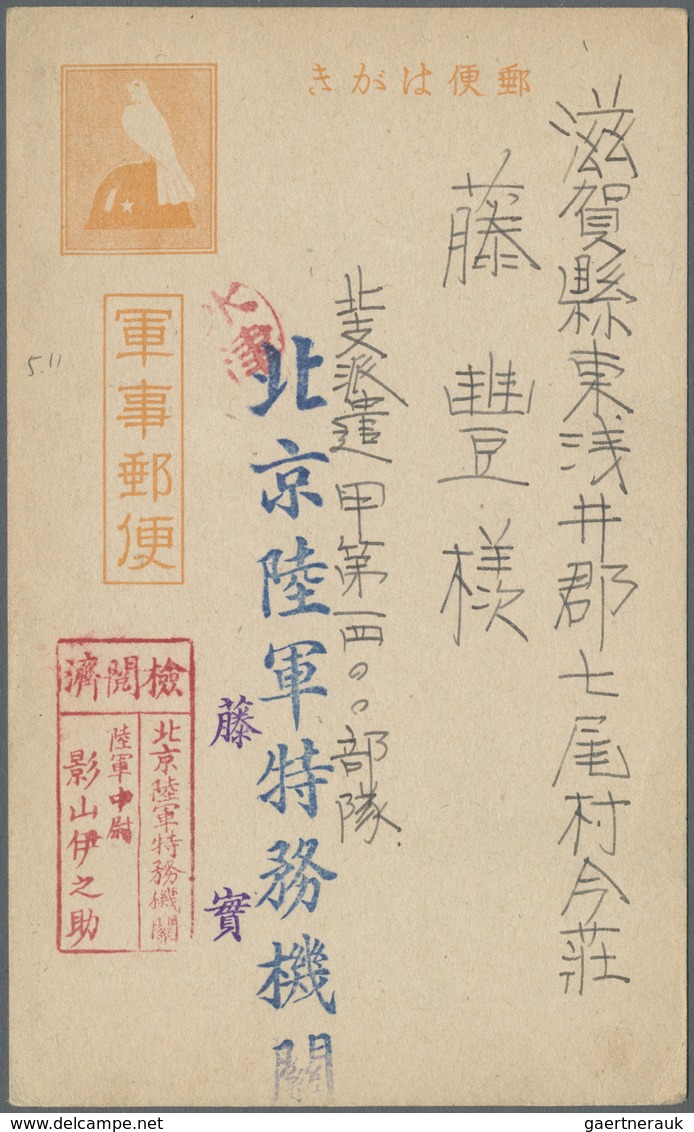 郵便はがき
滋賀縣東浅井郡七尾村今莊
藤豊様
北支派遣甲第一四〇〇部隊
北京陸軍特務機關
藤實
軍事郵便
檢閲濟
北京陸軍特務機關
陸軍中尉
影山伊之助
5.11
gaertnerauk